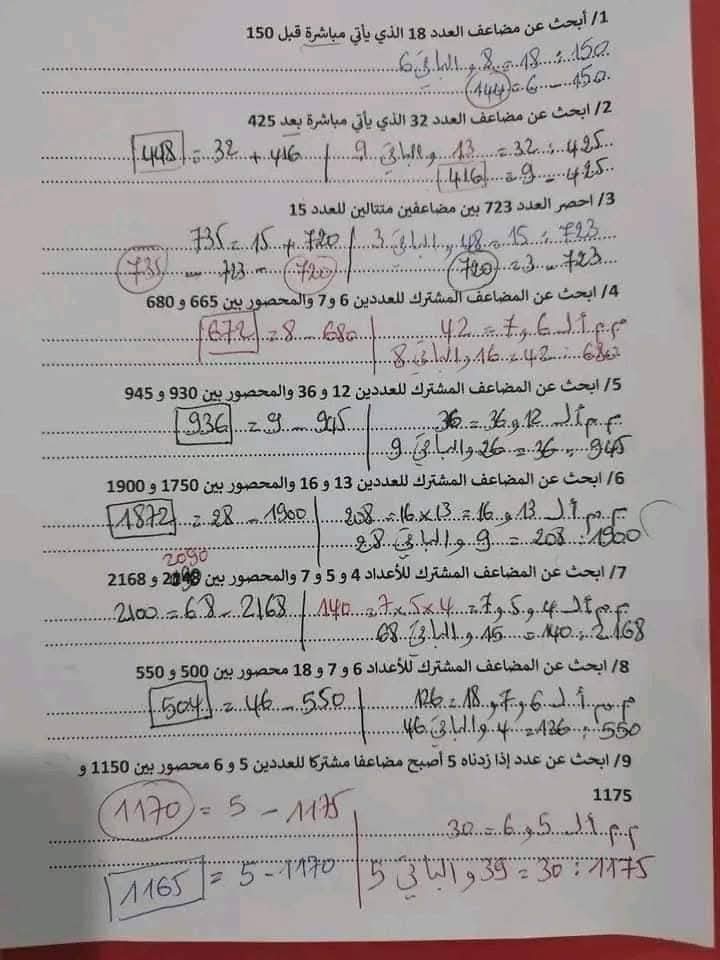 1/ أبحث عن مضاعف العدد 18 الذي يأتي مباشرة قبل 150
150 : 18 = 8 و الباقي 6
150 - 6 = 144
2/ ابحث عن مضاعف العدد 32 الذي يأتي مباشرة بعد 425
425 : 32 = 13 و الباقي 9 | 416 + 32 = 448
425 - 9 = 416
3/ احصر العدد 723 بين مضاعفين متتالين للعدد 15
723 : 15 = 48 و الباقي 3 | 720 + 15 = 735
723 - 3 = 720 | 720 - 723 - 735
4/ ابحث عن المضاعف المشترك للعددين 6 و 7 والمحصور بين 665 و 680
م.م.أ لـ 6 و 7 = 42 | 680 - 8 = 672
680 : 42 = 16 و الباقي 8
5/ ابحث عن المضاعف المشترك للعددين 12 و 36 والمحصور بين 930 و 945
م.م.أ لـ 12 و 36 = 36 | 945 - 9 = 936
945 : 36 = 26 و الباقي 9
6/ ابحث عن المضاعف المشترك للعددين 13 و 16 والمحصور بين 1750 و 1900
م.م.أ لـ 13 و 16 = 13×16 = 208 | 1900 - 28 = 1872
1900 : 208 = 9 و الباقي 28
2090
7/ ابحث عن المضاعف المشترك للأعداد 4 و 5 و 7 والمحصور بين و 2168
م.م.أ لـ 4 و 5 و 7 = 4×5×7 = 140 | 2168 - 68 = 2100
2168 : 140 = 15 و الباقي 68
8/ ابحث عن المضاعف المشترك للأعداد 6 و 7 و 18 محصور بين 500 و 550
م.م.أ لـ 6 و 7 و 18 = 126 | 550 - 46 = 504
550 : 126 = 4 و الباقي 46
9/ ابحث عن عدد إذا زدناه 5 أصبح مضاعفا مشتركا للعددين 5 و 6 محصور بين 1150 و
1175
م.م.أ لـ 5 و 6 = 30 | 1175 - 5 = 1170
1175 : 30 = 39 و الباقي 5 | 1170 - 5 = 1165